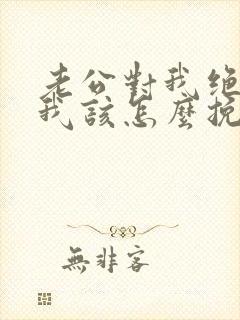 老公對我絕
我該怎麼挽
無非客